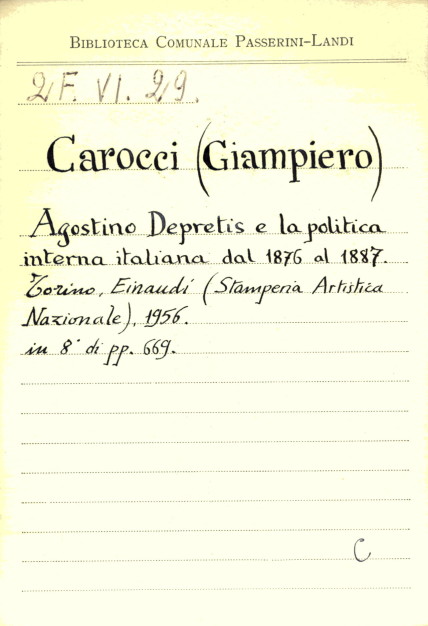 BIBLIOTECA COMUNALE PASSERINI-LANDI
2F. VI. 29.
Carocci (Giampiero)
Agostino Depretis e la politica
interna italiana dal 1876 al 1887.
Torino, Einaudi (Stamperia Artistica
Nazionale), 1956.
in 8° di pp. 669.
C